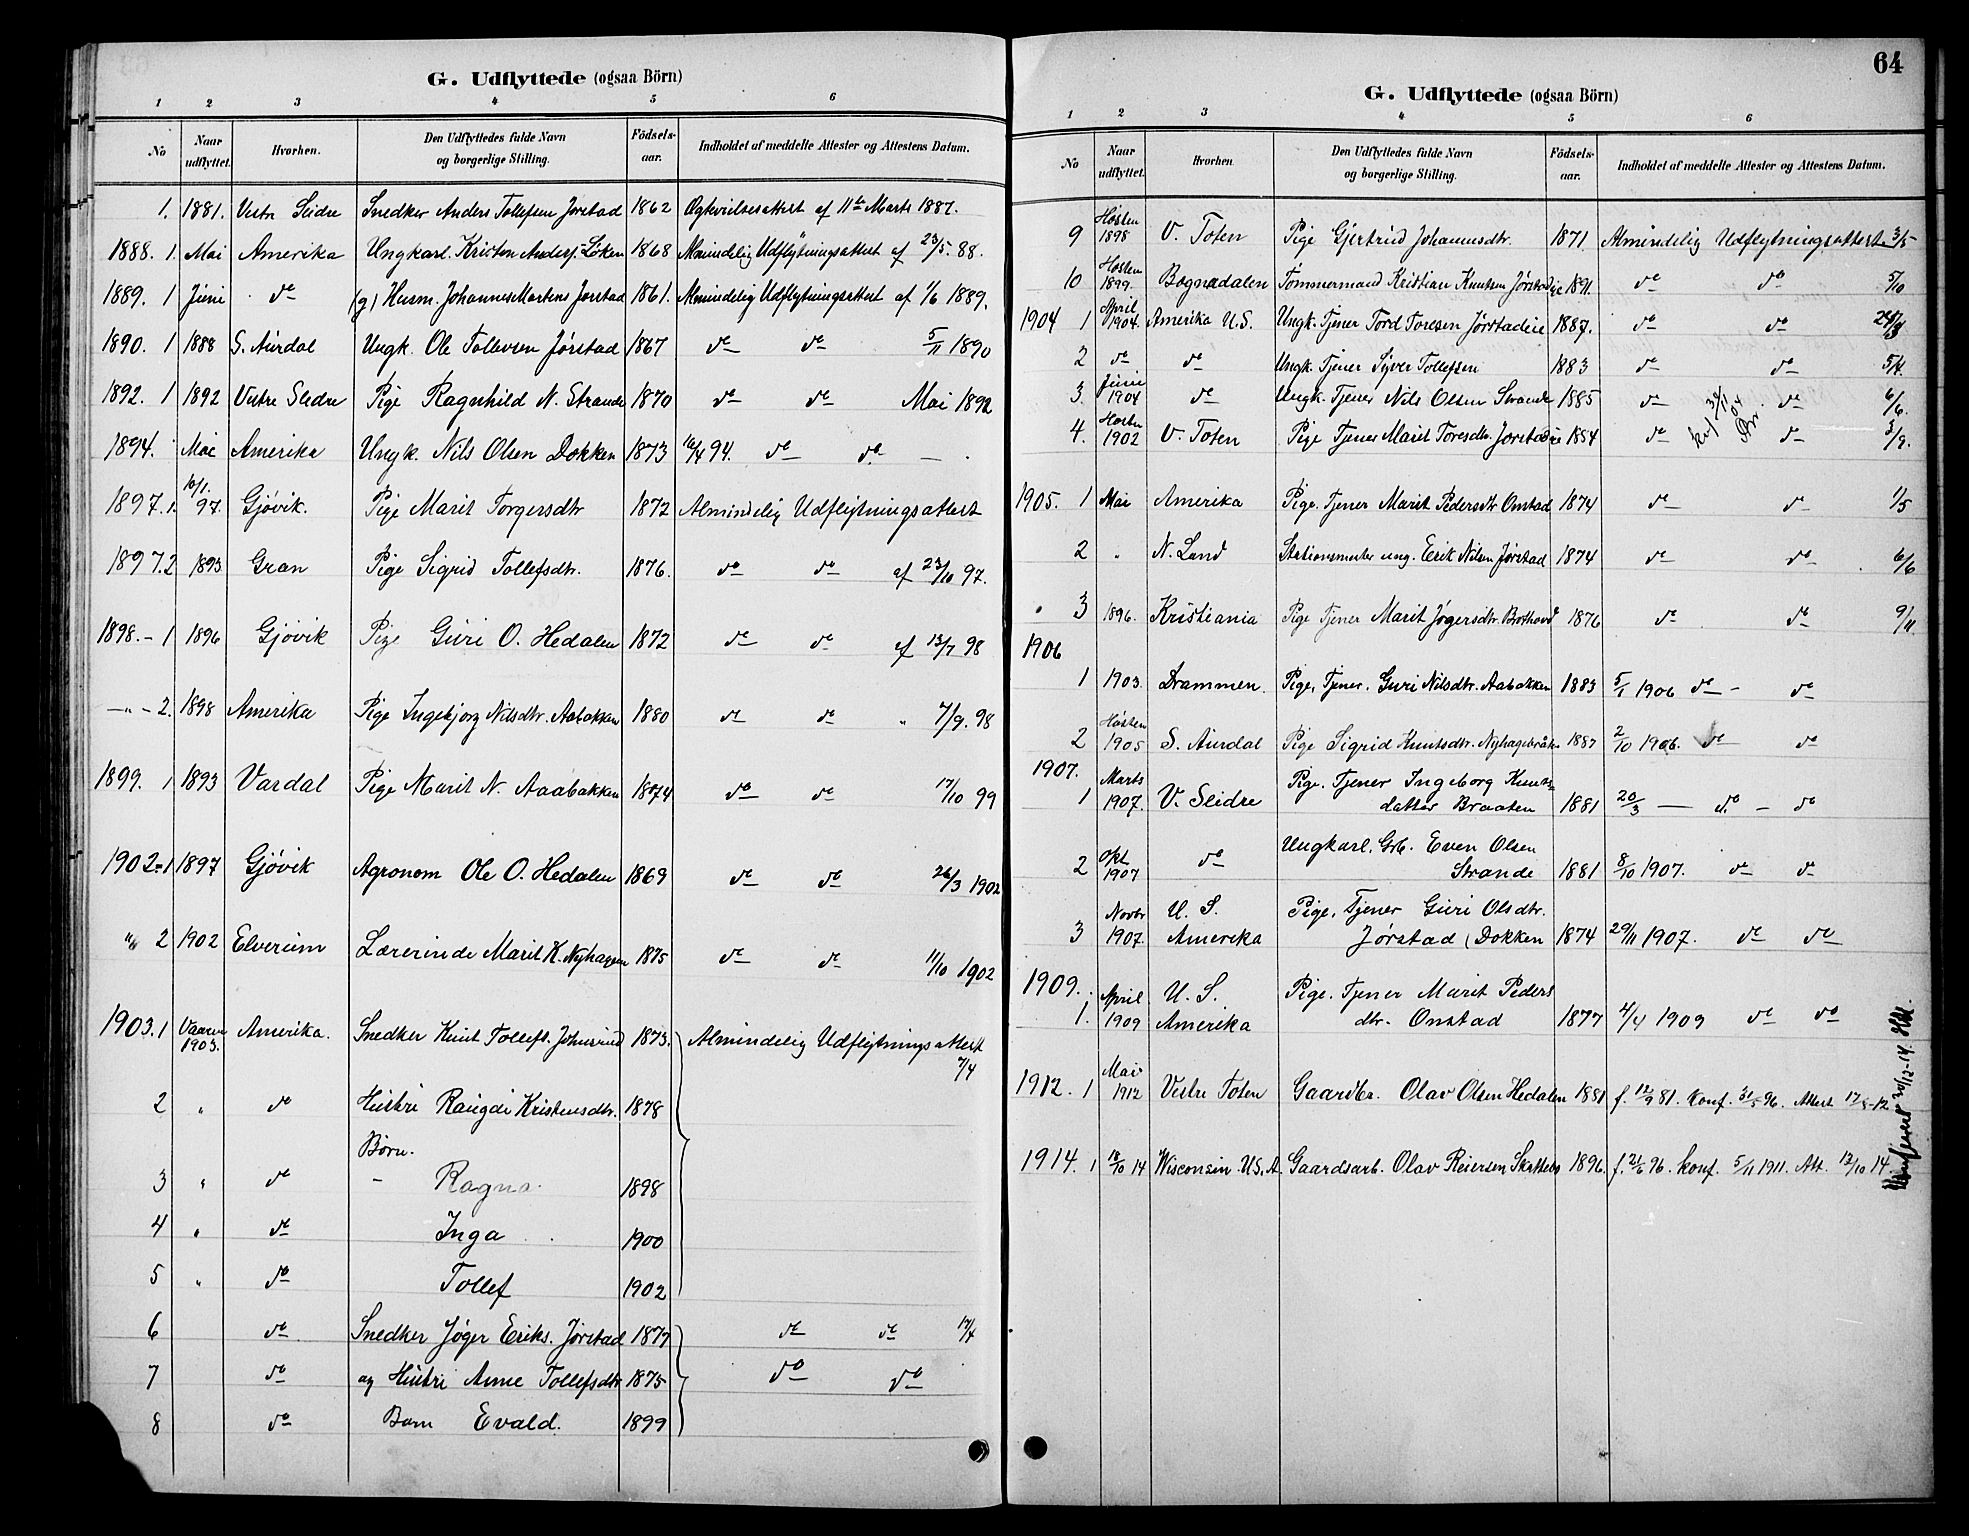 G. Udflyttede (ogsaa Börn)
1 2 3 4 5 6
No Naar udflyttet. Hvorhen. Den Udflyttedes fulde Navn og borgerlige Stilling. Födsels-aar. Indholdet af meddelte Attester og Attestens Datum.
1. 1881. Vestre Slidre Snedker Anders Tollefsen Jørstad 1862 af 11te Marts 1887.
1888. 1. Mai Amerika Ungkarl. Kristen Anders. Løken 1868 Almindelig Udflytningsattest af 23/5. 88.
1889. 1 Juni do (g) Husm. Johannes Martens Jørstad 1861. Almindelig Udflytningsattest af 1/6 1889.
1890. 1 1888 S. Aurdal Ungk. Ole Tollevsen Jørstad 1867 do do 5/11 1890
1892. 1 1892 Vestre Slidre Pige Ragnhild N. Strande 1870 do do Mai 1892
1894. Mai Amerika Ungk. Nils Olsen Dokken 1873 16/4 94. do do —
1897. 1. 10/1. 97. Gjøvik. Pige Marit Torgersdtr 1872 Almindelig Udflytningsattest
1897. 2 1893 Gran Pige Sigrid Tollefsdtr. 1876. do do af 23/10 97.
1898. - 1 1896 Gjøvik Pige Guri O. Hedalen 1872 do do af 13/7 98
—"— 2. 1898 Amerika Pige Ingebjorg Nilsdtr. Aabakken 1880 do do " 7/9. 98
1899. 1 1893 Vardal Pige Marit N. Aaabakken 1874 do do 17/10 99
1902 - 1 1897 Gjøvik Agronom Ole O. Hedalen 1869 do do 26/3 1902
"/" 2 1902 Elverum Lærerinde Marit K. Nyhagen 1875 do do 11/10 1902
1903. 1 Vaaren 1903. Amerika. Snedker Knut Tollefs. Johnsrud 1873. Almindelig Udflytningsattest
7/4
2 " do Hustru Rangdi Kristensdtr. 1878
Børn.
3 " do - Ragna. 1898
4 " do Inga 1900
5 " do Tollef 1902
6 do Snedker Jøger Eriks. Jørstad 1877 do do 17/4
7 do og Hustru Anne Tollefsdtr 1875 do do
8 do Barn Evald. 1899
64
G. Udflyttede (ogsaa Börn)
1 2 3 4 5 6
No Naar udflyttet. Hvorhen. Den Udflyttedes fulde Navn og borgerlige Stilling. Födsels-aar. Indholdet af meddelte Attester og Attestens Datum.
9 Høsten 1898 V. Toten Pige Gjertrud Johannesdtr. 1871. Almindelig Udflytningsattest. 3/5
10 Høsten 1899. Bagnadalen Tømmermand Kristian Knutsen Jørstadeie 1891. do do 5/10
1904 1 April 1904. Amerika U.S. Ungk. Tjener Tord Toresen Jørstadeie 1887. do do
2 do do Ungk. Tjener Syver Tollefsen 1883 do do 5/4.
3. Juni 1904 do Ungk. Tjener Nils Olsen Strande 1885 do do 6/6.
4. Høsten 1902 V. Toten Pige Tjener Marit Toresdtr. Jørstadeie 1884 do do 3/9.
1905. 1 Mai Amerika Pige. Tjener Marit Pedersdtr Onstad 1874 do do 1/5
2 " N. Land Stationsmester ung. Erik Nilsen Jørstad 1874 do do 6/6
" 3 1896. Kristiania Pige Tjener Marit Jøgersdtr. 1876 do do 9/11
1906
1 1903. Drammen. Pige, Tjener. Guri Nilsdtr. Aabakken 1883 5/1 1906 do - do
2 Høsten 1905 S. Aurdal Pige Sigrid Knutsdtr. 1887 2/10 1906. do do
1907.
1 Marts 1907. V. Slidre Pige. Tjener Ingeborg Knuts-
datter Braaten 1881 20/3 — do — do
2 Okt 1907 do Ungkarl, Grb. Even Olsen
Strande 1881 8/10 1907. do do
3 Novbr 1907. U. S. Amerika Pige, Tjener Guri Olsdtr.
Jørstad (Dokken 1874 29/11 1907. do do
1909.
1. April 1909 U. S. Amerika Pige. Tjener Marit Peders
dtr. Onstad 1877 4/4 1909 do do
1912. 1 Mai 1912 Vestre Toten Gaardbr. Olav Olsen Hedalen 1881 f. 12/9 81. konf. 31/5 96. Attest 17/5-12
1914. 1 18/10 14 Wisconsin U.S.A. Gaardsarb. Olav Reiersen Skattebo 1896. f. 21/6 96. konf. 5/11 1911. Att. 13/10 14
Konfereret 30/12-14.